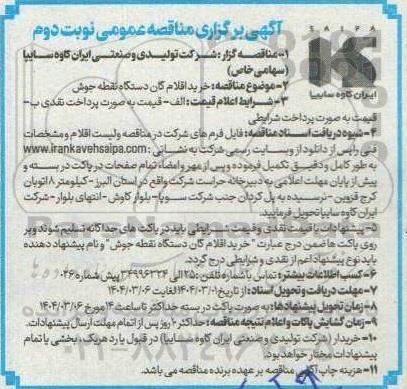 آگهی برگزاری مناقصه عمومی نوبت دوم
SAIPA
ایران کاوه سایپا
۱- مناقصه گزار: شرکت تولیدی و صنعتی ایران کاوه سایپا
(سهامی خاص)
۲- موضوع مناقصه: خرید اقلام گان دستگاه نقطه جوش
۳- شرایط اعلام قیمت: الف- قیمت به صورت پرداخت نقدی ب-
قیمت به صورت پرداخت شرایطی
۴- شیوه دریافت اسناد مناقصه: فایل فرم های شرکت در مناقصه ولیست اقلام و مشخصات
فنی را پس از دانلود از وبسایت رسمی شرکت به نشانی: www.irankavehsaipa.com
به طور کامل و دقیق تکمیل فرموده و پس از مهر و امضاء تمام صفحات در پاکت در بسته و
پیش از پایان مهلت اعلامی به دبیرخانه حراست شرکت واقع در استان البرز - کیلومتر ۸ اتوبان
کرج قزوین - نرسیده به پل کردان جنب شرکت سوپا- بلوار کاوش - انتهای بلوار - شرکت
ایران کاوه سایپا تحویل فرمایید.
۵- پیشنهادات با قیمت نقدی و قیمت شرایطی باید در پاکت های جداگانه تسلیم شوند و بر
روی پاکت ها ضمن درج عبارت "خرید اقلام گان دستگاه نقطه جوش" و نام پیشنهاد دهنده
باید نوع پیشنهاد اعم از نقدی و شرایطی درج گردد.
۶- کسب اطلاعات بیشتر: تماس با شماره تلفن: ۲۵۰ الی ۳۴۹۹۶۲۳۴ پیش شماره ۰۲۶
۷- مهلت دریافت و تحویل اسناد: از تاریخ ۱۴۰۴/۰۳/۰۱ لغایت ۱۴۰۴/۰۳/۰۶
۸- زمان تحویل پیشنهادها: به صورت پاکت در بسته حداکثر تا ساعت ۱۴ مورخ ۱۴۰۴/۰۳/۰۶
۹- زمان گشایش پاکات و اعلام نتیجه مناقصه: حداکثر ۱۰ روز پس از اتمام مهلت ارسال پیشنهادات.
۱۰- خریدار (شرکت تولیدی و صنعتی ایران کاوه سایپا) در قبول یا رد هریک، بخشی یا تمام
پیشنهادات مختار خواهد بود.
۱۱- هزینه چاپ آگهی مناقصه بر عهده برنده مناقصه می باشد.